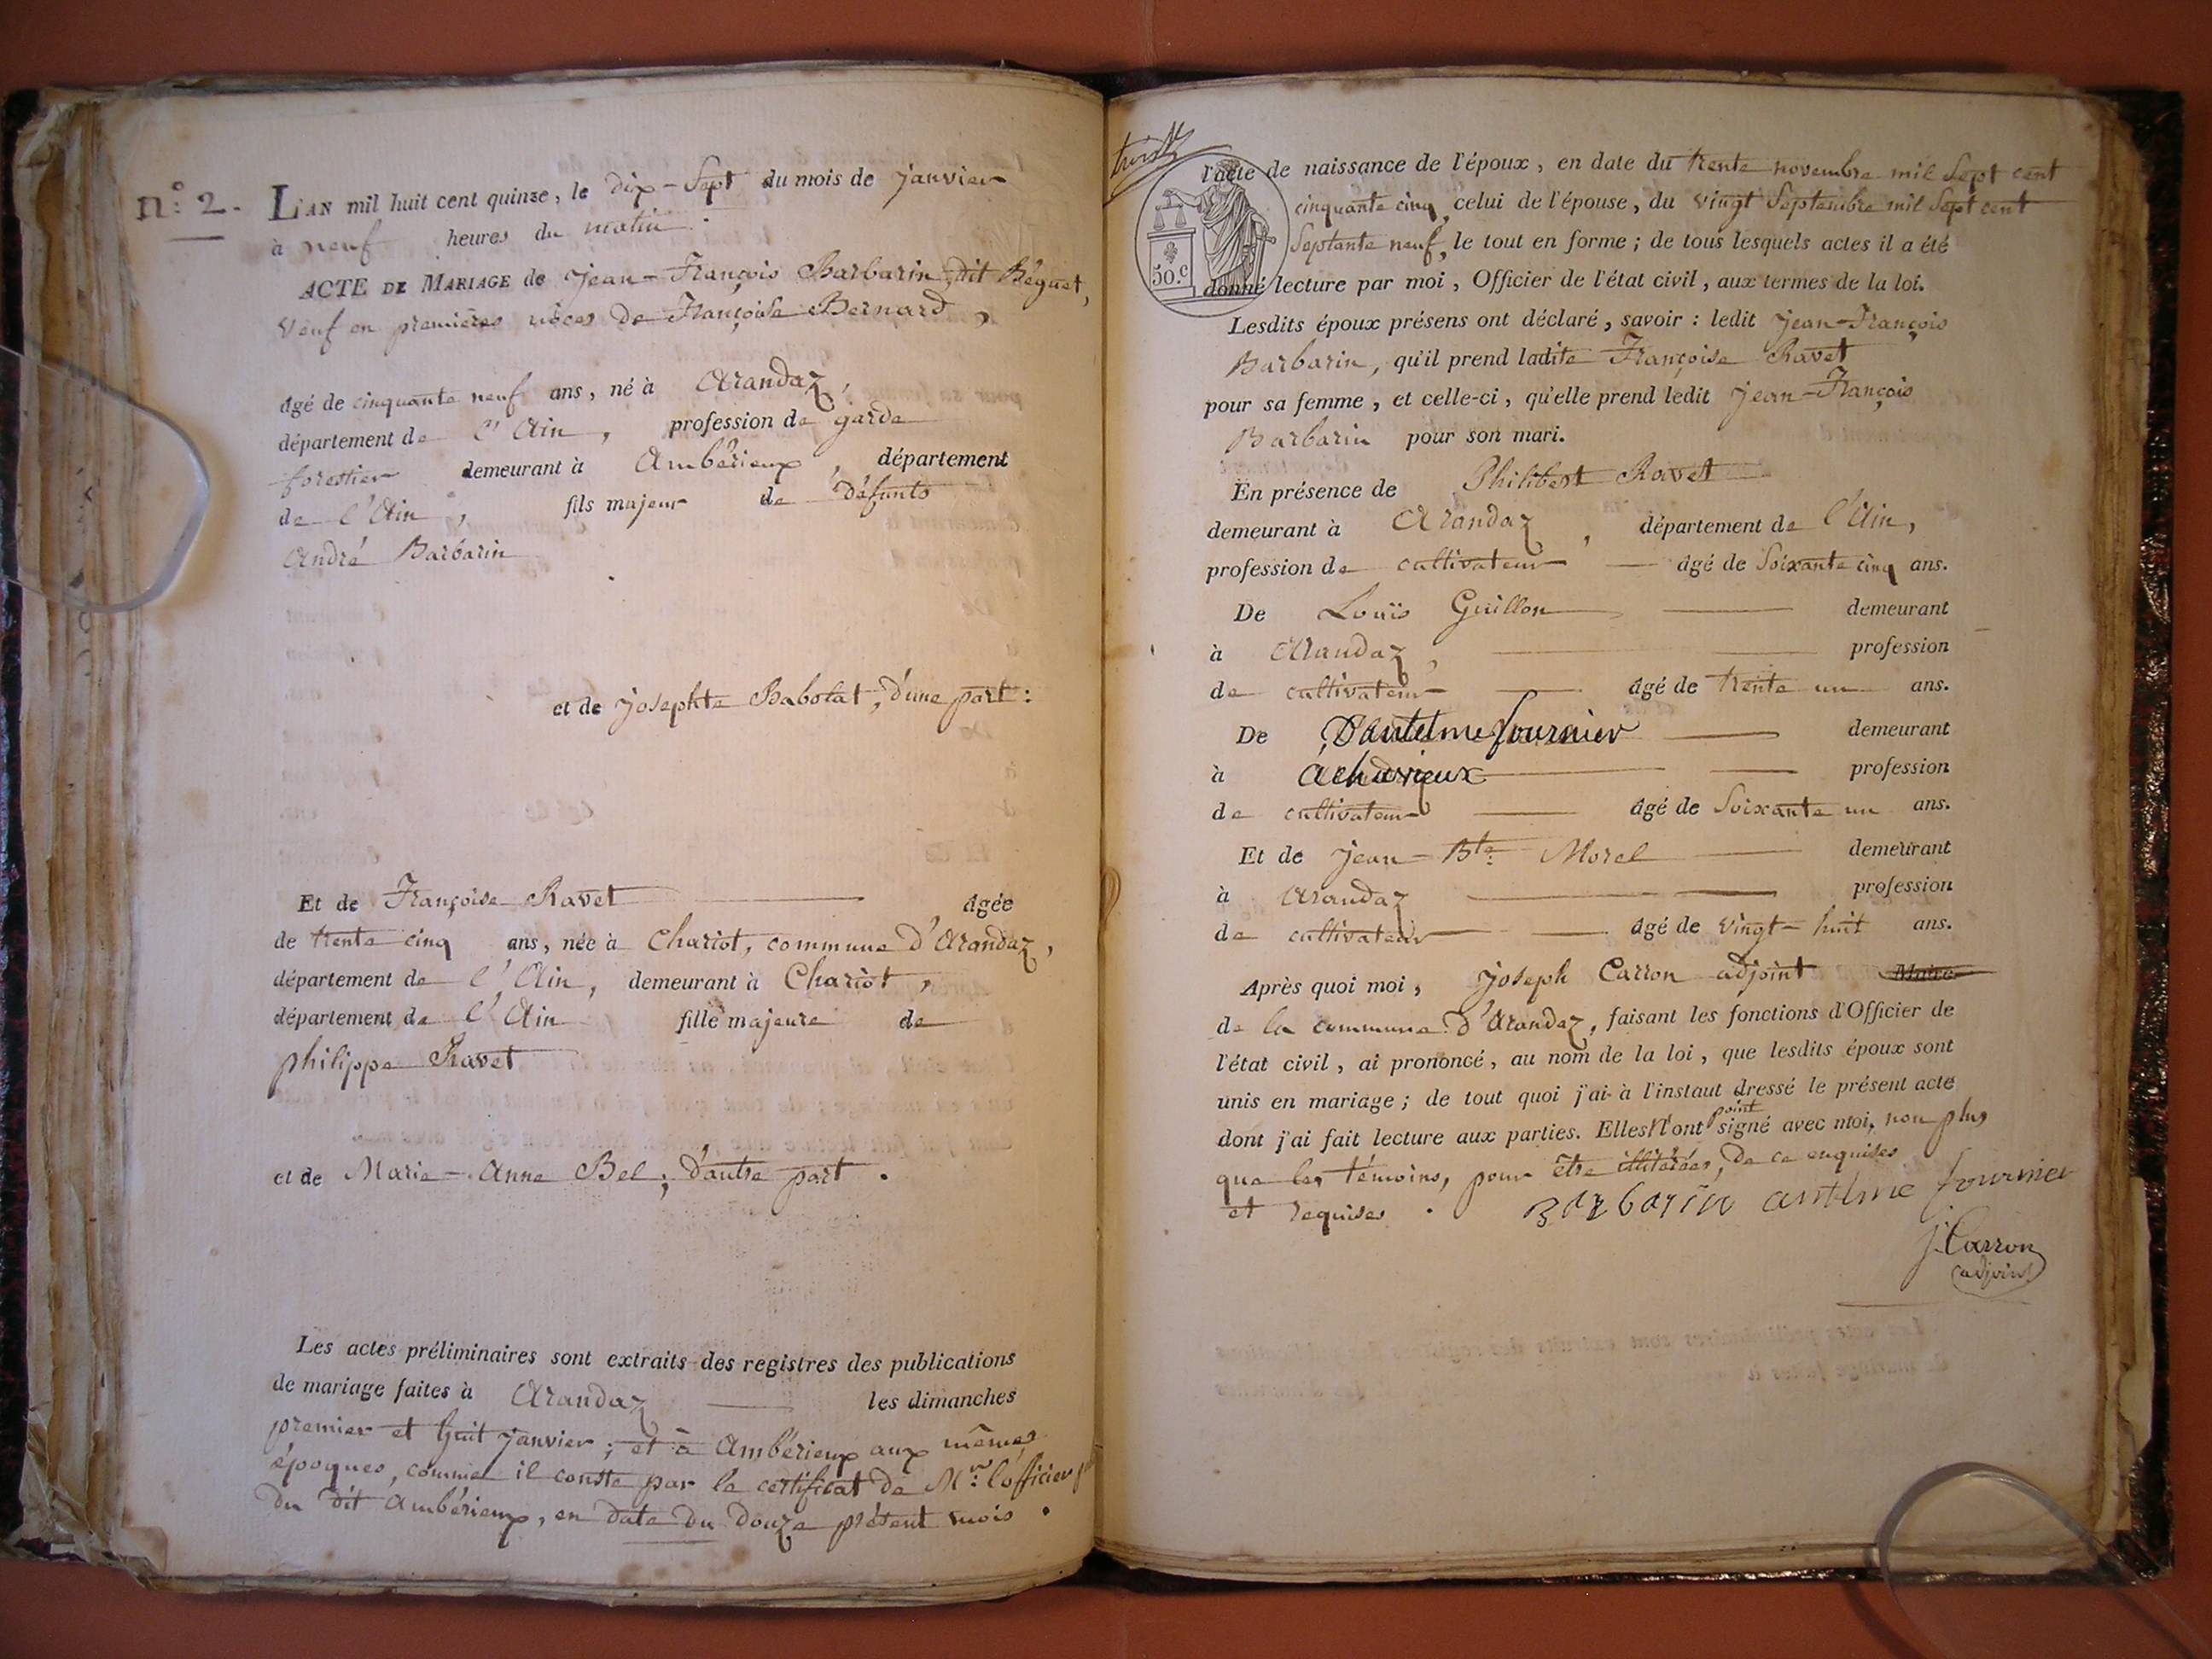 n.° 2.
L'AN mil huit cent quinze, le dix-sept du mois de janvier
à neuf heures du matin.
ACTE DE MARIAGE de jean-François Barbarin, dit Béguet,
veuf en premières nôces de Françoise Bernard,
âgé de cinquante neuf ans, né à Arandaz,
département de l'Ain, profession de garde
forestier demeurant à Ambérieux, département
de l'Ain, fils majeur de défunts
André Barbarin
et de josephte Babolat, d'une part:
Et de Françoise Ravet âgée
de trente cinq ans, née à Chariot, commune d'Arandaz,
département de l'Ain, demeurant à Chariot,
département de l'Ain fille majeure de
philippe Ravet
et de Marie-Anne Bel; d'autre part.
Les actes préliminaires sont extraits des registres des publications
de mariage faites à Arandaz les dimanches
premier et huit janvier; et à Ambérieux aux mêmes
époques, comme il conste par le certificat de Mr. l'officier
du dit Ambérieux, en date du douze présent mois.
50.c
l'acte de naissance de l'époux, en date du trente novembre mil sept cent
cinquante cinq, celui de l'épouse, du vingt septembre mil sept cent
septante neuf, le tout en forme; de tous lesquels actes il a été
donné lecture par moi, Officier de l'état civil, aux termes de la loi.
Lesdits époux présens ont déclaré, savoir: ledit jean-François
Barbarin, qu'il prend ladite Françoise Ravet
pour sa femme, et celle-ci, qu'elle prend ledit jean-François
Barbarin pour son mari.
En présence de Philibert Ravet
demeurant à Arandaz, département de l'Ain,
profession de cultivateur âgé de soixante cinq ans.
De Louis Guillon demeurant
à Arandaz, profession
de cultivateur âgé de trente un ans.
De D'antelme fournier demeurant
à profession
de cultivateur âgé de soixante un ans.
Et de jean-Bte. Morel demeurant
à Arandaz profession
de cultivateur âgé de vingt-huit ans.
Après quoi moi, joseph Carron adjoint Maire
de la commune d'Arandaz, faisant les fonctions d'Officier de
l'état civil, ai prononcé, au nom de la loi, que lesdits époux sont
unis en mariage; de tout quoi j'ai à l'instant dressé le présent acte
dont j'ai fait lecture aux parties. Elles n'ont point signé avec moi, non plus
que les témoins, pour être illitérées, de ce enquises
et requises. Barbarin antelme fournier
j. Carron
adjoint